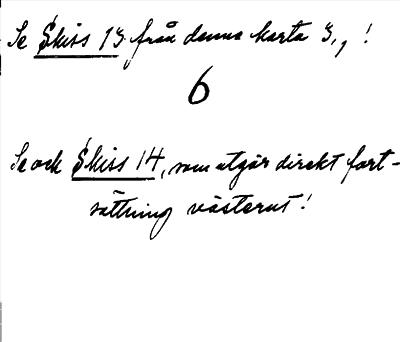 Se Skiss 13 från denna karta 3,, !
6
Se ock Skiss 14, som utgör direkt fort-
sättning västerut!